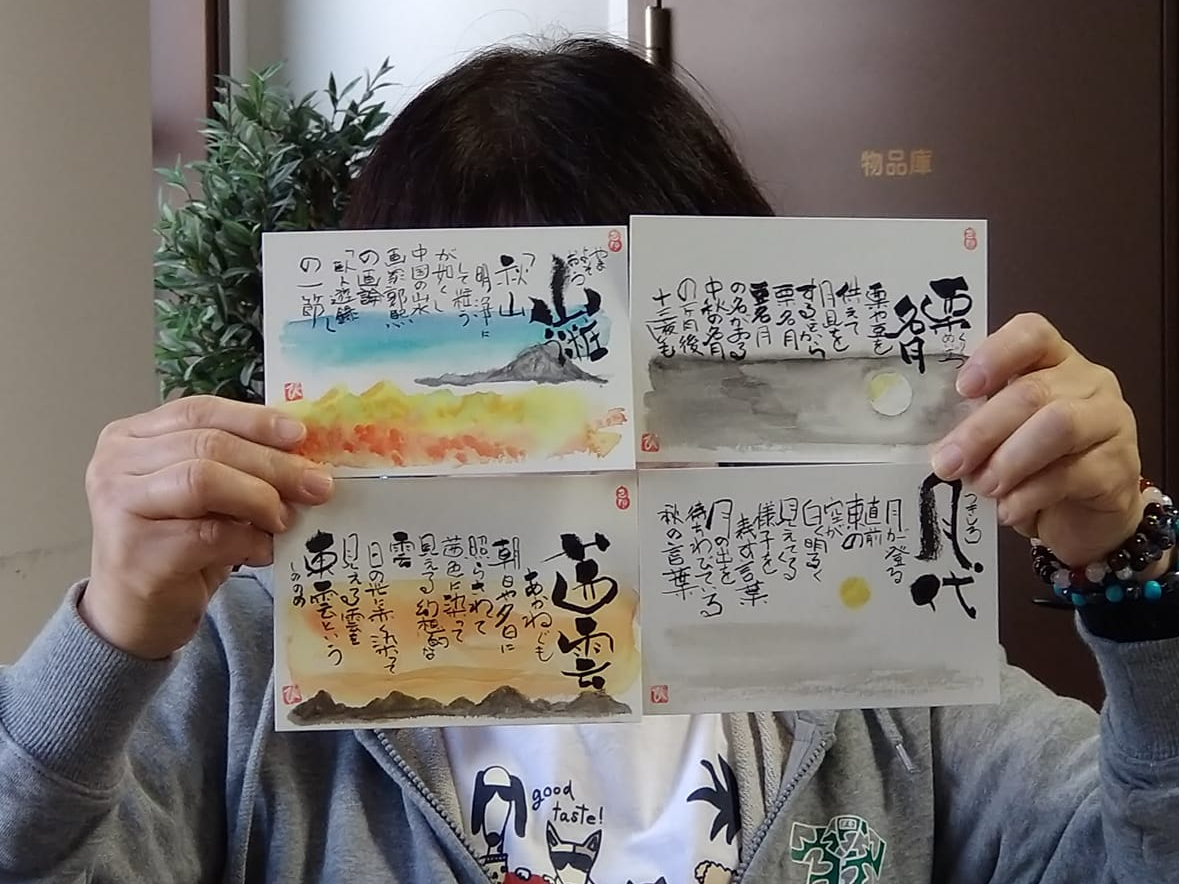 物品庫
山粧う
やまよそおう
「秋山
明浄に
して粧う
が如し」
中国の山水
画家郭熙
の画論
「臥遊録」
の一節
栗名月
栗や豆を
供えて
月見を
するから
栗名月
豆名月
の名がある
中秋の名月
の一ヶ月後
十三夜も
茜雲
あかねぐも
朝日や夕日に
照らされて
茜色に染って
見える幻想的な
雲
日の光に赤く染って
見える雲を
東雲という
しののめ
月代
つきしろ
月が登る
直前
東の
空が
白く明るく
見えてくる
様子を
表す言葉
月の出を
待ちわびている
秋の言葉
good
taste!